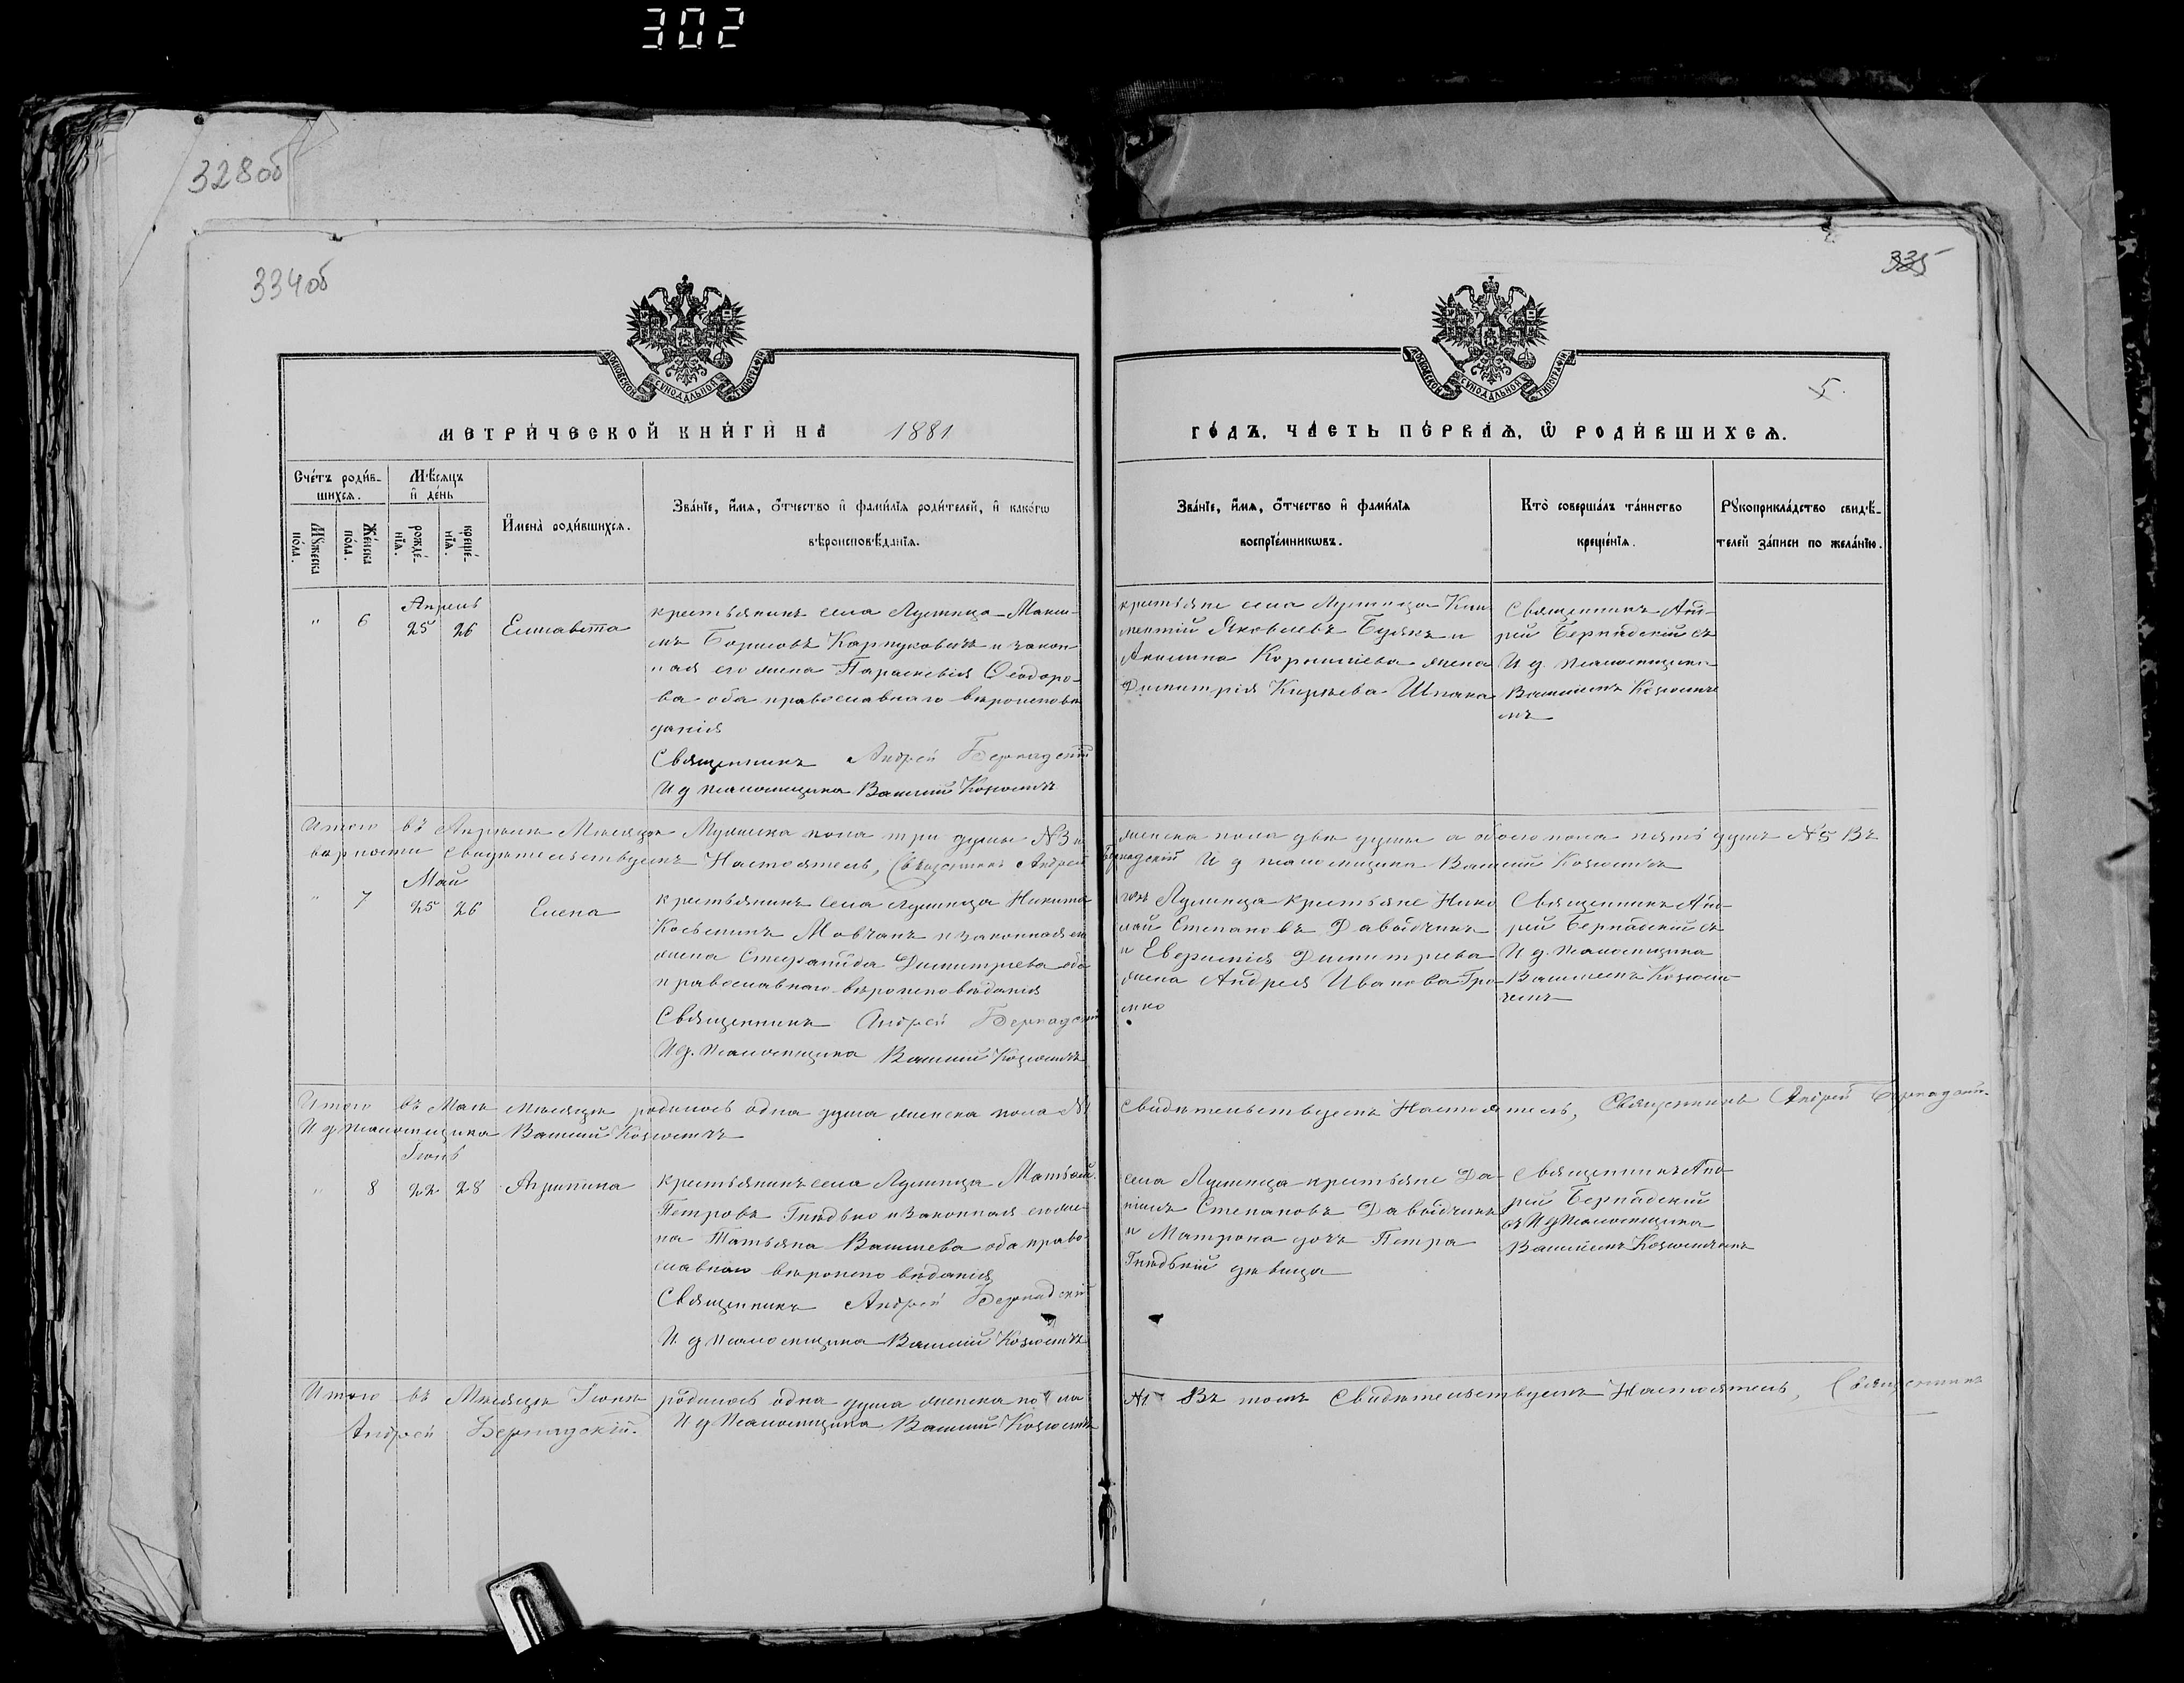 302
328об
334об
335
5.
МОСКОВСКОЙ СѴНОДАЛЬНОЙ ТИПОГРАФІИ
МОСКОВСКОЙ СѴНОДАЛЬНОЙ ТИПОГРАФІИ
МЕТРИ́ЧЕСКОЙ КНИ́ГИ НА 1881
ГО́ДЪ, ЧА́СТЬ ПЕ́РВАѦ, Ѡ҆ РОДИ́ВШИХСѦ.
Сче́тъ роди́в-
шихсѧ.
Мѣ́сѧцъ
и҆ де́нь
Мꙋ́жеска
по́ла.
Же́нска
по́ла.
рожде́-
нїѧ.
креще́-
нїѧ.
И҆мена̀ роди́вшихсѧ.
Зва́нїе, и҆́мѧ, ѻ҆́тчество и҆ фами́лїѧ роди́телей, и҆ како́гѡ
вѣроисповѣ́данїѧ.
Зва́нїе, и҆́мѧ, ѻ҆́тчество и҆ фами́лїѧ
воспрїе́мникѡвъ.
Кто̀ соверша́лъ та́инство
креще́нїѧ.
Рꙋкоприкла́дство свидѣ́-
телей за́писи по жела́нїю.
Апрель
" 6 25 26 Елисавета
крестьянинъ села Лулинца Макси-
мъ Борисовъ Карпуковичъ и закон-
ная его жена Параскевія Ѳеодоро-
ва оба православнаго вѣроисповѣ
данія
Священникъ Андрей Бернадскій
И д псаломщика Василій
крестьяне села Лулинца
Яковлевъ Буякъ и
Акилина Корнилiева жена
Димитрія Кирѣева Шпака
Священникъ Анд-
рей Бернадскій съ
И д. псаломщика
Василіемъ
мъ
Итого въ Апрѣлѣ Мѣсяцѣ Мужеска пола три души №3 и
женска пола двѣ души а обоего пола пять душъ №5 Въ
вѣрности свидѣтельствуемъ Настоятель, Священникъ Андрей
Бернадскій И д псаломщика Василій
Май
" 7 25 26 Елена
крестьянинъ села Лулинца Никита
Косьминъ Мовчанъ и законная его
жена Стефанида Димитрева оба
православнаго вѣроисповѣданія
Священникъ Андрей Бернадскій
И д. псаломщика Василій
Лулинца крестьяне Нико
лай Степановъ Давыдчикъ
и Евфимія Димитриева
жена Андрея Иванова Гро-
мко
Священникъ Анд-
рей Бернадскій съ
И д. псаломщика
Василіемъ
чемъ
Итого въ Маѣ Мѣсяцѣ родилось одна душа женска пола №1
свидѣтельствуемъ Настоятель, Священникъ Андрей Бернадскій.
И д псаломщика Василій
Іюнь
" 8 22 28 Агрипина
крестьянинъ села Лулинца Матѳей
Петровъ Гнѣдько и законная его же-
на Татьяна Василева оба право-
славнаго вѣроисповѣданія
Священникъ Андрей Бернадскій
И д псаломщика Василій
села Лулинца крестьяне Да-
ніилъ Степановъ Давыдчикъ
и Матрона дочь Петра
Гнѣдькій дѣвица
Священникъ Анд-
рей Бернадскій
съ И д псаломщика
Василіемъ
Итого въ Мѣсяцѣ Іюнѣ родилось одна душа женска пола
№1 Въ томъ Свидѣтельствуемъ Настоятель, Священникъ
Андрей Бернадскій. И д псаломщика Василій